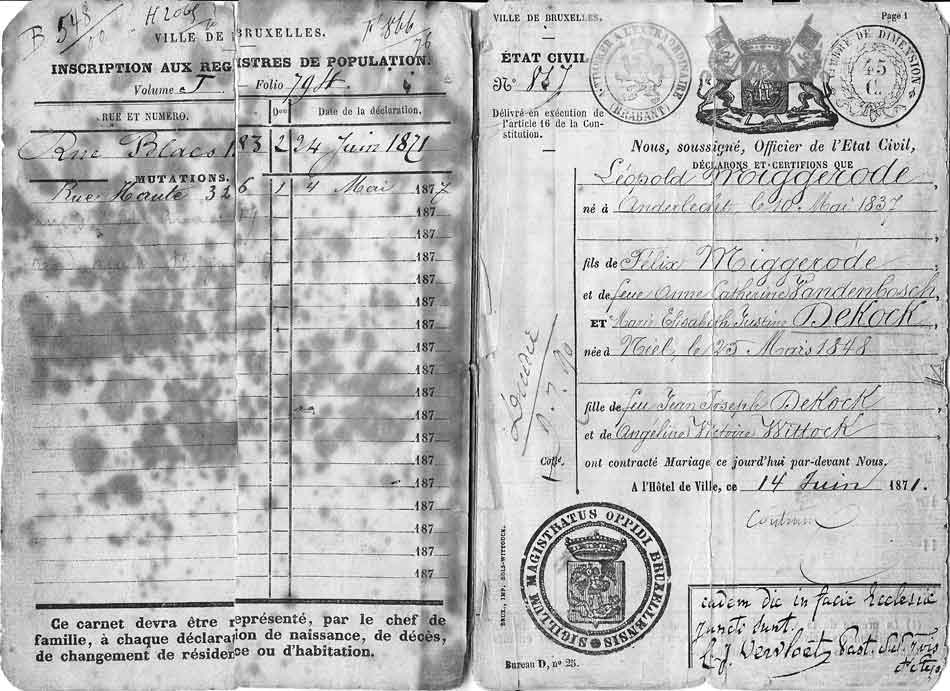 B 548
H 2065
F° 866
VILLE DE BRUXELLES.
INSCRIPTION AUX REGISTRES DE POPULATION.
Volume J Folio 794
RUE ET NUMÉRO.
Don
Date de la déclaration.
Rue Blaes 183 2 24 Juin 1871
MUTATIONS.
Rue Haute 326 1 4 Mai 1877
187
187
187
187
187
187
187
187
187
187
187
187
187
187
187
187
187
Ce carnet devra être représenté, par le chef de
famille, à chaque déclaration de naissance, de décès,
de changement de résidence ou d'habitation.
VILLE DE BRUXELLES.
Page 1
ÉTAT CIVIL
N° 817
Délivré en exécution de
l'article 16 de la Con-
stitution.
(BRABANT)
TIMBRE DE DIMENSION
45
C.
Nous, soussigné, Officier de l'Etat Civil,
DÉCLARONS ET CERTIFIONS QUE
Léopold Miggerode
né à Anderlecht, le 10 Mai 1837
fils de Félix Miggerode
et de feue Anne Catherine Vandenbosch
ET Marie Elisabeth Justine DeKock
née à Niel, le 25 Mars 1848
fille de feu Jean Joseph DeKock
et de Angeline Victoire Wittock
ont contracté Mariage ce jourd'hui par-devant Nous.
A l'Hôtel de Ville, ce 14 Juin 1871.
SIGILLUM MAGISTRATUS OPPIDI BRUXELLENSIS
BRUX., IMP. BOLS-WITTOUCK.
Bureau D, n° 25.
eadem die in facie Ecclesiae
juncti sunt.
J. Vervloet Past.